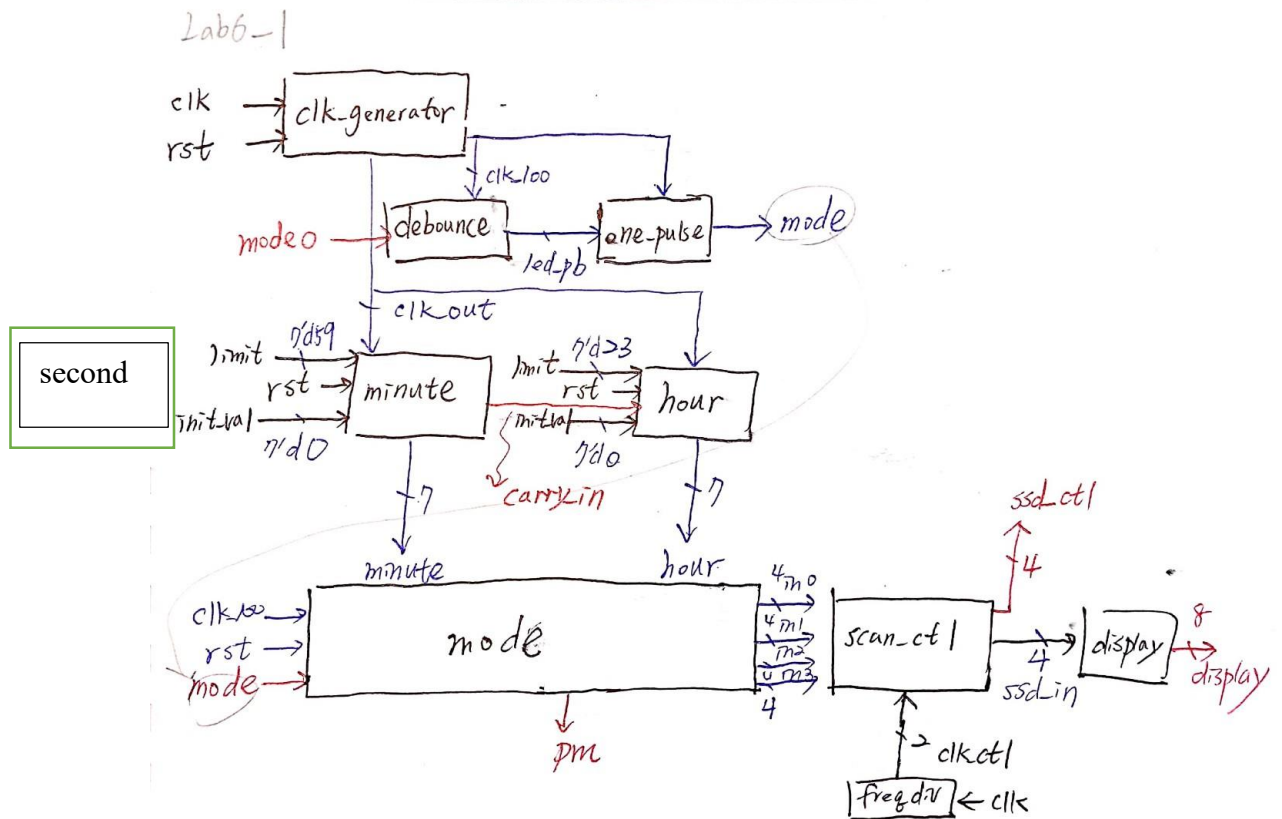 Lab6-1
clk
rst
clk_generator
clk_100
mode0
debounce
led_pb
one_pulse
mode
clk_out
second
limit
7'd59
rst
init_val
7'd0
minute
limit
7'd23
rst
initval
7'd0
hour
carry_in
7
7
minute
hour
clk100
rst
mode
mode
pm
4 in0
4 in1
in2
in3
4
scan_ctl
ssd_ctl
4
4
ssd_in
display
8
display
2
clk_ctl
freqdiv
clk